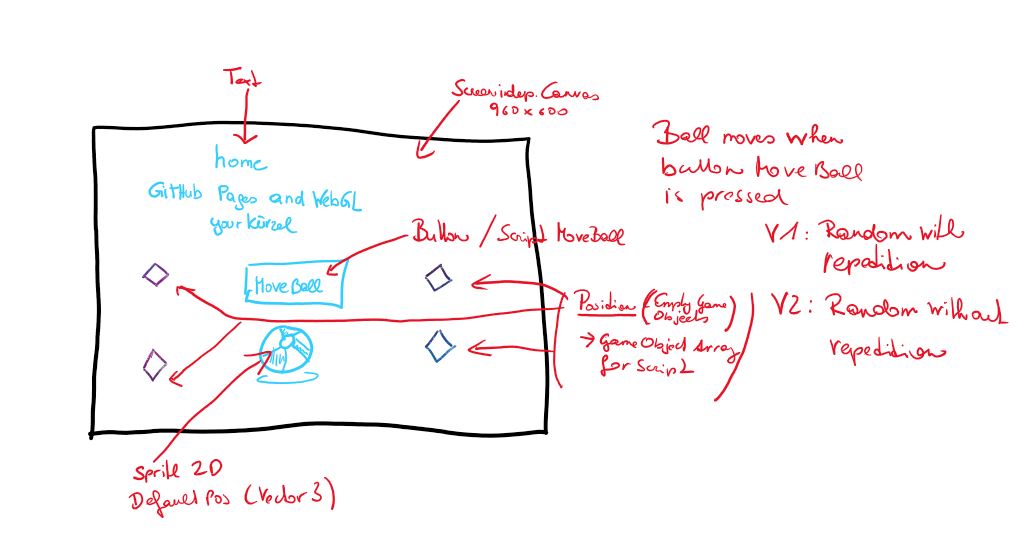 Text
Screenindep. Canvas
960 x 600
home
GitHub Pages and WebGL
your Kürzel
Button / Script MoveBall
MoveBall
Position (Empty Game
Objects)
→ GameObject Array
for Script
Sprite 2D
Default Pos (Vector3)
Ball moves when
button MoveBall
is pressed
V1: Random with
repedition
V2: Random without
repedition